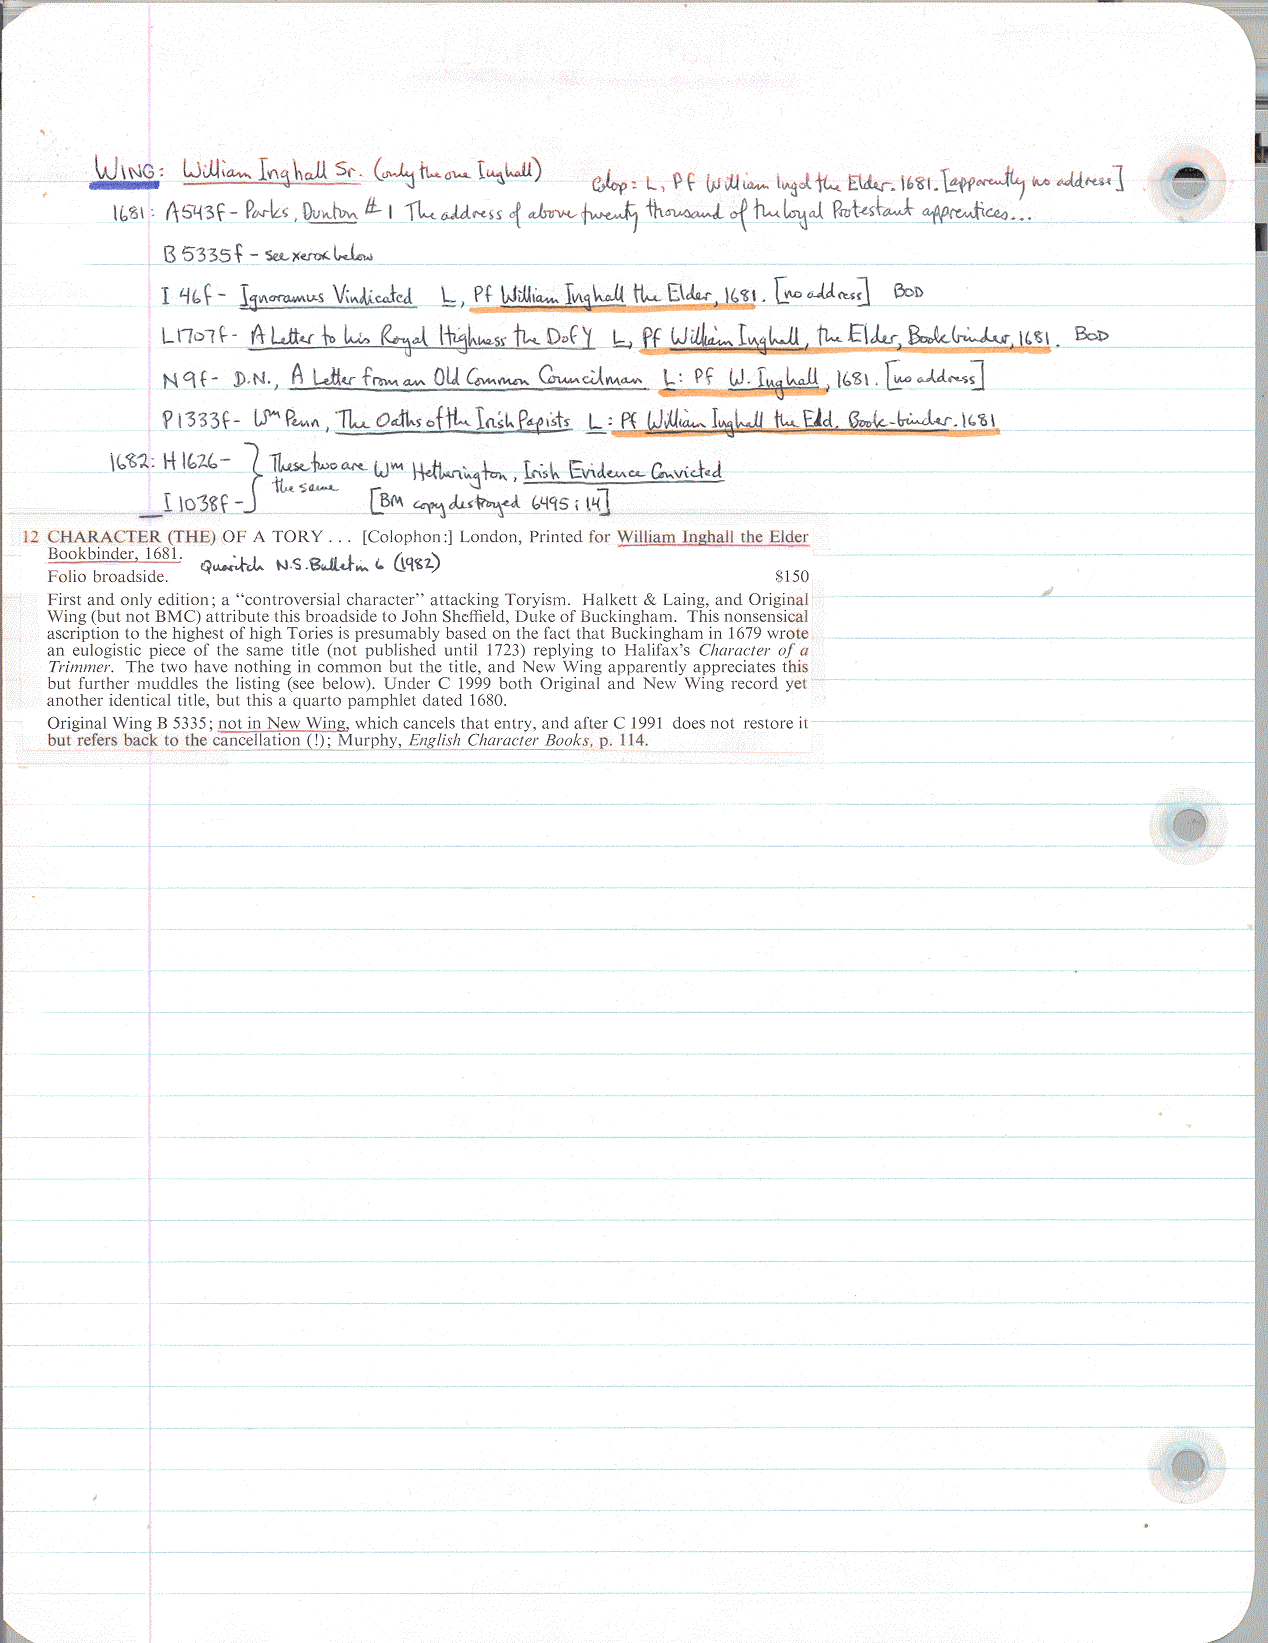 WING: William Inghall Sr. (only the one Inghall)
Colop: L, Pf William Ingol the Elder. 1681. [apparently no address]
1681: A543f - Parks, Dunton #1 The address of above twenty thousand of the loyal Protestant apprentices...
B5335f - see xerox below
I 46f - Ignoramus Vindicated L, Pf William Inghall the Elder, 1681. [no address] BOD
L1707f - A Letter to his Royal Highness the DofY L, Pf William Inghall, the Elder, Bookbinder, 1681. BOD
N9f - D.N., A Letter from an Old Common Councilman L: Pf W. Inghall, 1681. [no address]
P1333f - Wm Penn, The Oaths of the Irish Papists L: Pf William Inghall the Eld. Book-binder. 1681
1682: H1626 - } These two are Wm Hetherington, Irish Evidence Convicted
the same
I1038f - [BM copy destroyed 6495 i 14]
12 CHARACTER (THE) OF A TORY . . . [Colophon:] London, Printed for William Inghall the Elder
Bookbinder, 1681.
Quaritch N.S. Bulletin 6 (1982)
Folio broadside. $150
First and only edition; a "controversial character" attacking Toryism. Halkett & Laing, and Original
Wing (but not BMC) attribute this broadside to John Sheffield, Duke of Buckingham. This nonsensical
ascription to the highest of high Tories is presumably based on the fact that Buckingham in 1679 wrote
an eulogistic piece of the same title (not published until 1723) replying to Halifax's Character of a
Trimmer. The two have nothing in common but the title, and New Wing apparently appreciates this
but further muddles the listing (see below). Under C 1999 both Original and New Wing record yet
another identical title, but this a quarto pamphlet dated 1680.
Original Wing B 5335; not in New Wing, which cancels that entry, and after C 1991 does not restore it
but refers back to the cancellation (!); Murphy, English Character Books, p. 114.